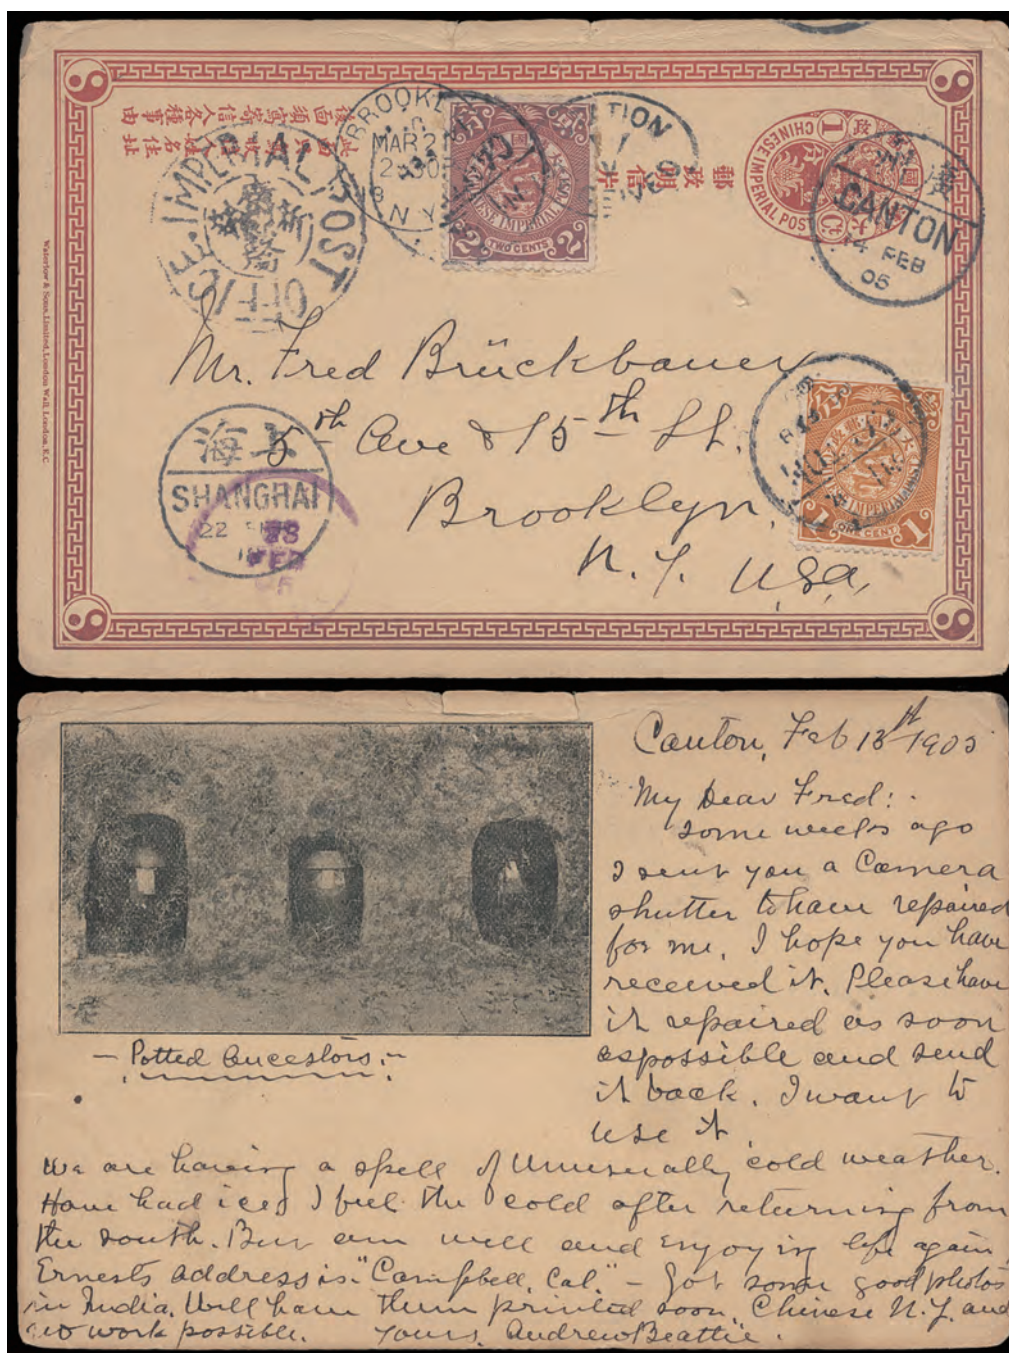 CHINESE IMPERIAL POST
1
郵政明信片
此面只寫收信人名姓住址
後面須寫寄信人各種事由
IMPERIAL POST OFFISE
BROOKL
MAR 2
2 30
N Y
TION
大
TWO CENTS
2 2
廣
CANTON
14 FEB
05
Waterlow & Sons, Limited, London Wall, London, E.C.
Mr. Fred Brückbauer
5th Ave & 15th St.
Brooklyn,
N. Y. U.S.A.
上海
SHANGHAI
22
FEB
5
ONE CENT
1 1
Canton, Feb 13th 1905
My Dear Fred:
Some weeks ago
I sent you a Camera
shutter to have repaired
for me. I hope you have
received it. Please have
it repaired as soon
as possible and send
it back. I want to
use it.
- Potted Ancestors: -
We are having a spell of unusually cold weather.
Have had ice & I feel the cold after returning from
the south. But am well and enjoying life again
Ernests address is "Campbell, Cal." - Got some good photos
in India. Will have them printed soon. Chinese N.Y. and
no work possible. Yours, Andrew Beattie.